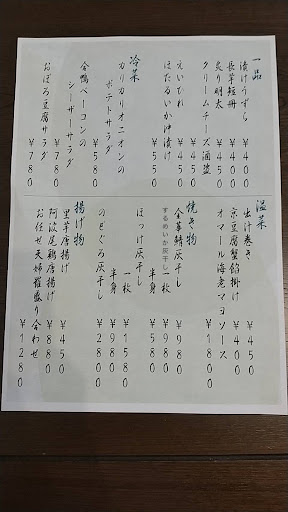 一品
漬けうずら ¥400
長芋短冊 ¥400
炙り明太 ¥450
クリームチーズ酒盗 ¥450
えいひれ ¥450
ほたるいか沖漬け ¥550
冷菜
カリカリオニオンの
ポテトサラダ ¥580
合鴨ベーコンの
シーザーサラダ ¥780
おぼろ豆腐サラダ ¥780
温菜
出汁巻き ¥450
京豆腐蟹餡掛け ¥400
オマール海老マヨソース ¥1800
焼き物
金華鯖灰干し ¥980
するめいか灰干し 一枚 ¥980
半身 ¥580
ほっけ灰干し 一枚 ¥1580
半身 ¥980
のどぐろ灰干し ¥2800
揚げ物
里芋唐揚げ ¥450
阿波尾鶏唐揚げ ¥880
お任せ天婦羅盛り合わせ ¥1280